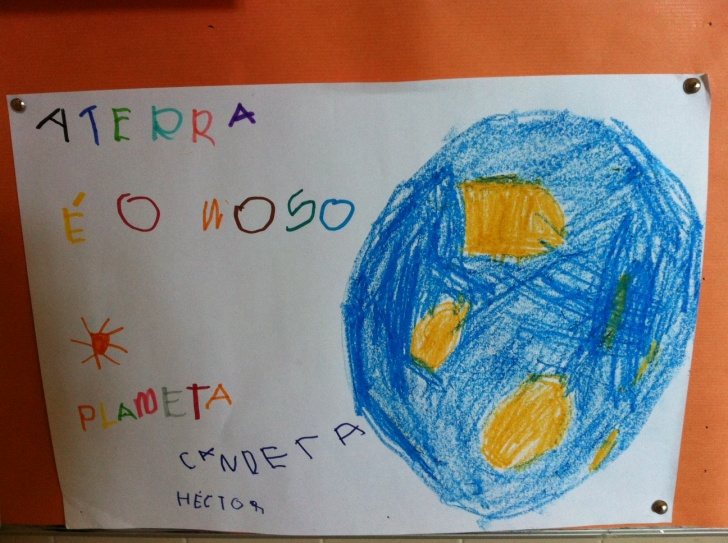 A TERRA
É O NOSO
PLANETA
CANDELA
HÉCTOR